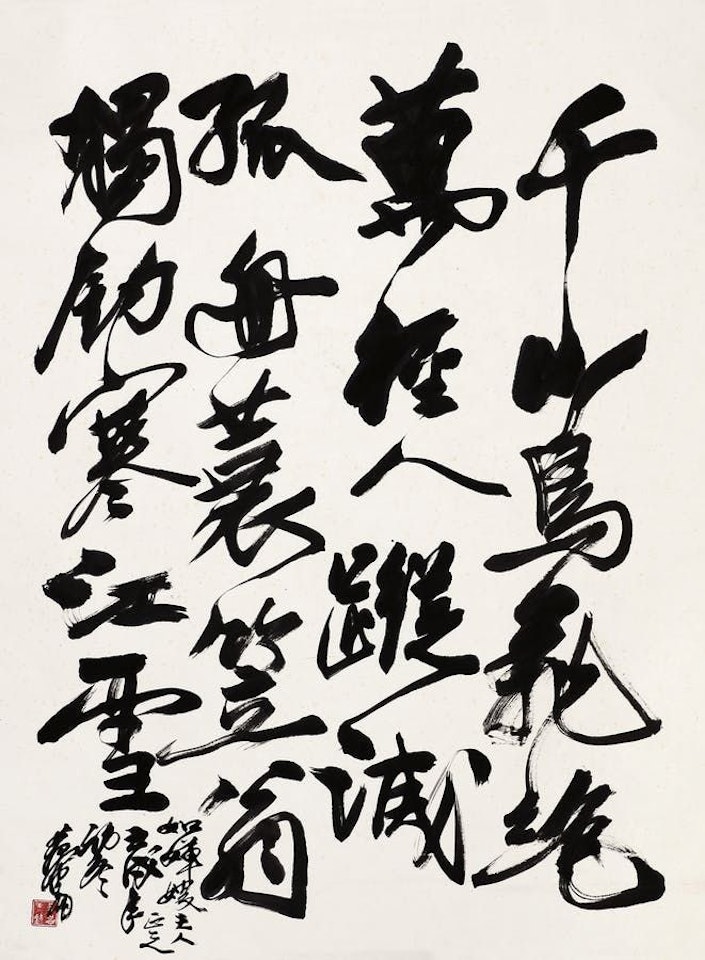 千山鳥飛絕
萬徑人蹤滅
孤舟蓑笠翁
獨釣寒江雪
如暉嫂主人正之
初冬